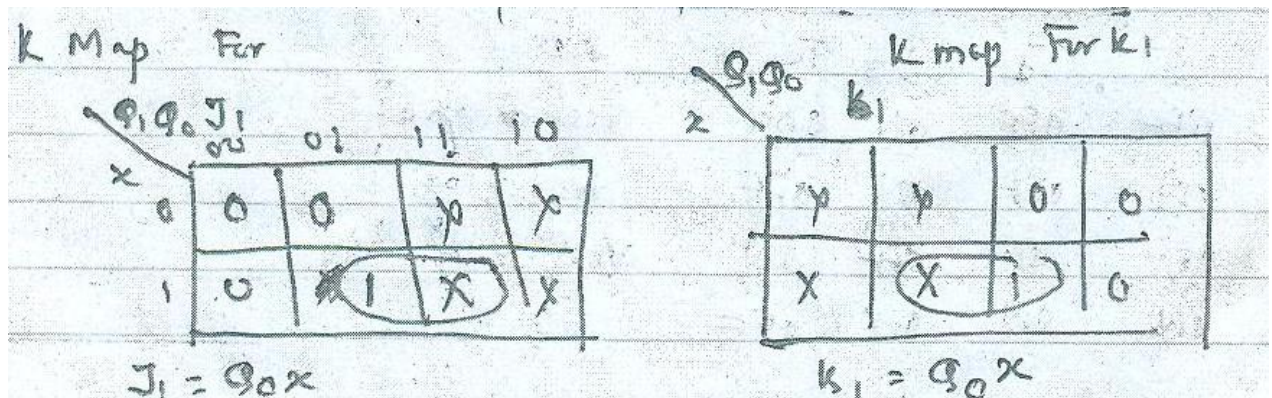 K Map For
Q1Q0 J1
x 00 01 11 10
0 0 0 X X
1 0 1 X X
J1 = Q0x
K map For K1
Q1Q0
x K1
X X 0 0
X X 1 0
K1 = Q0x